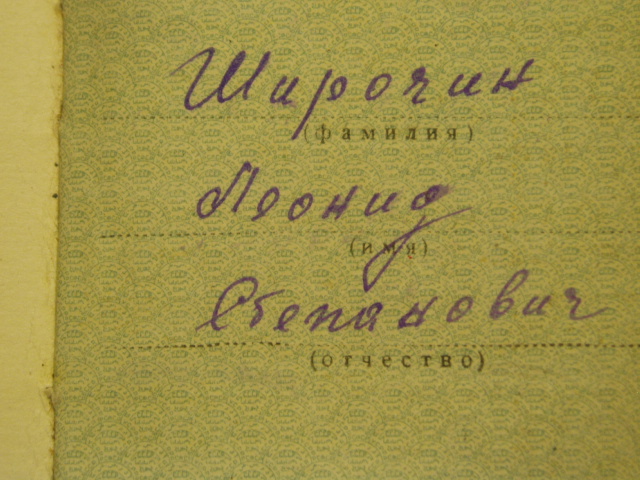 Широчин
(фамилия)
Леонид
(имя)
Степанович
(отчество)